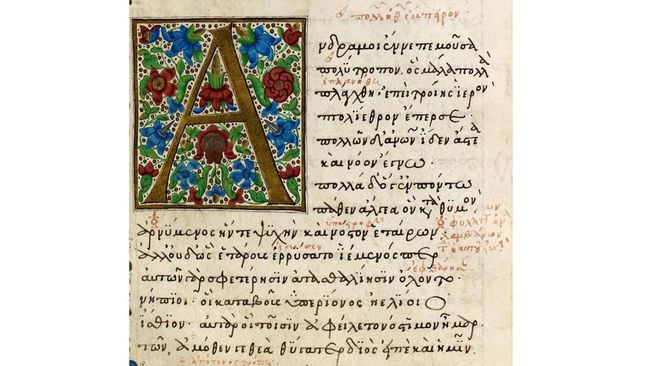 Ἄνδρα μοι ἔννεπε μοῦσα
πολύτροπον. ὃς μάλα πολλὰ
πλάγχθη. ἐπεὶ τροίης ἱερὸν
πτολίεθρον ἔπερσε
πολλῶν δ' ἀνῶν ἴδεν ἄστεα
καὶ νόον ἔγνω
πολλὰ δ' ὅγ' ἐν πόντω
πάθεν ἄλγεα ὃν κατὰ θυμὸν
ἀρνύμενος ἥν τε ψυχὴν καὶ νόστον ἑταίρων
ἀλλ' οὐδ' ὣς ἑτάρους ἐρρύσατο ἱέμενός περ
αὐτῶν γὰρ σφετέρησιν ἀτασθαλίησιν ὄλοντο
νήπιοι. οἳ κατὰ βοῦς ὑπερίονος ἠελίοιο
ἤσθιον. αὐτὰρ ὁ τοῖσιν ἀφείλετο νόστιμον ἦμαρ.
τῶν ἁμόθεν γε θεὰ θύγατερ διὸς εἰπὲ καὶ ἡμῖν.